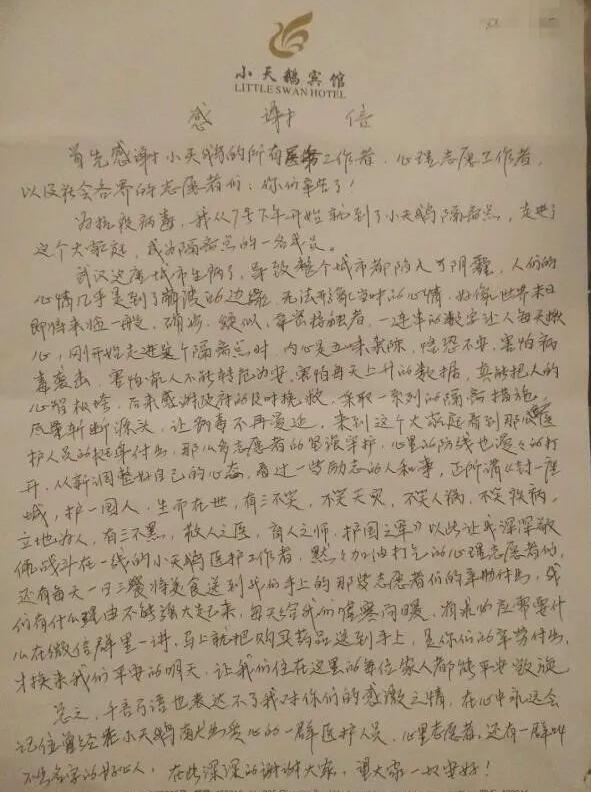 小天鹅宾馆
LITTLE SWAN HOTEL
感 谢 信
首先感谢小天鹅的所有医务工作者、心理志愿工作者,
以及社会各界的志愿者们:你们辛苦了!
为抗役病毒,我从7号下午开始就到了小天鹅隔离点,走进了
这个大家庭,成为隔离点的一名成员。
武汉这座城市生病了,导致整个城市都陷入了阴霾,人们的
心情几乎是到了崩溃的边缘,无法形象当时的心情,好像世界末日
即将来临一般,确诊、疑似、密密接触者,一连串的数字让人每天揪
心,刚开始走进这个隔离点时,内心是五味杂陈,惶恐不安,害怕病
毒袭击,害怕家人不能转危为安,害怕每天上升的数据,真能把人的
心智极垮,后来感谢政府的及时挽救,采取一系列的隔离措施,
果断斩断源头,让病毒不再蔓延,来到这个大家庭看到那么医
护人员的辛苦付出,那么多志愿者的坚强守护,心里的防线也慢慢的打
开,从新调整好自己的心态,看过一些励志的人和事,正所谓《封一座
城,护一国人,生而在世,有三不笑,不笑天灾,不笑人祸,不笑疾病,
立地为人,有三不黑,救人之医,育人之师,护国之军》以此让我深深敬
佩战斗在一线的小天鹅医护工作者,默默加油打气的心理志愿者们,
还有每天一日三餐将美食送到我们手上的那些志愿者们的辛勤付出,我
们有什么理由不能强大起来,每天给我们嘘寒问暖,有求必应需要什
么在微信群里一讲,马上就把购买药品送到手上,是你们的辛劳付出,
才换来我们平安的明天,让我们住在这里的每位家人都能平安
总之,千言万语也表达不了我对你们的感激之情,在心中永远会
记住曾经在小天鹅献出爱心的一群医护人员、心里志愿者,还有一群叫
不出名字的好心人,在此深深的谢谢大家,望大家一切安好!